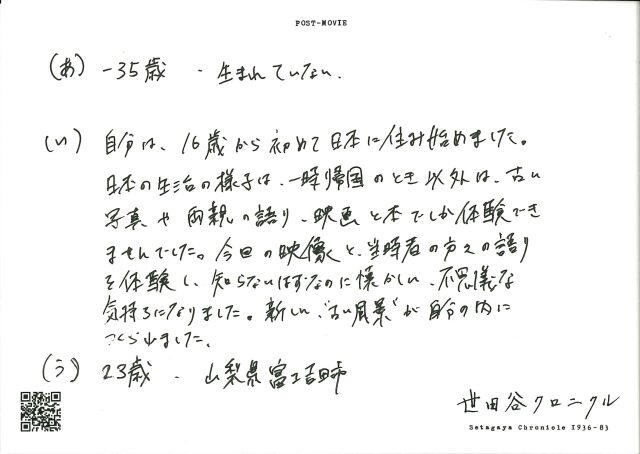 POST-MOVIE
(あ) -35歳 ・ 生まれていない.
(い) 自分は、16歳から初めて日本に住み始めました。
日本の生活の様子は、一時帰国のとき以外は、古い
写真や両親の語り、映画と本でしか体験でき
ませんでした。今回の映像と、当時者の方々の語り
を体験し、知らないはずなのに懐かしい、不思議な
気持ちになりました。新しい、"古い風景"が自分の内に
つくられました.
(う) 23歳 ・ 山梨県富士吉田市
世田谷クロニクル
Setagaya Chronicle 1936-83